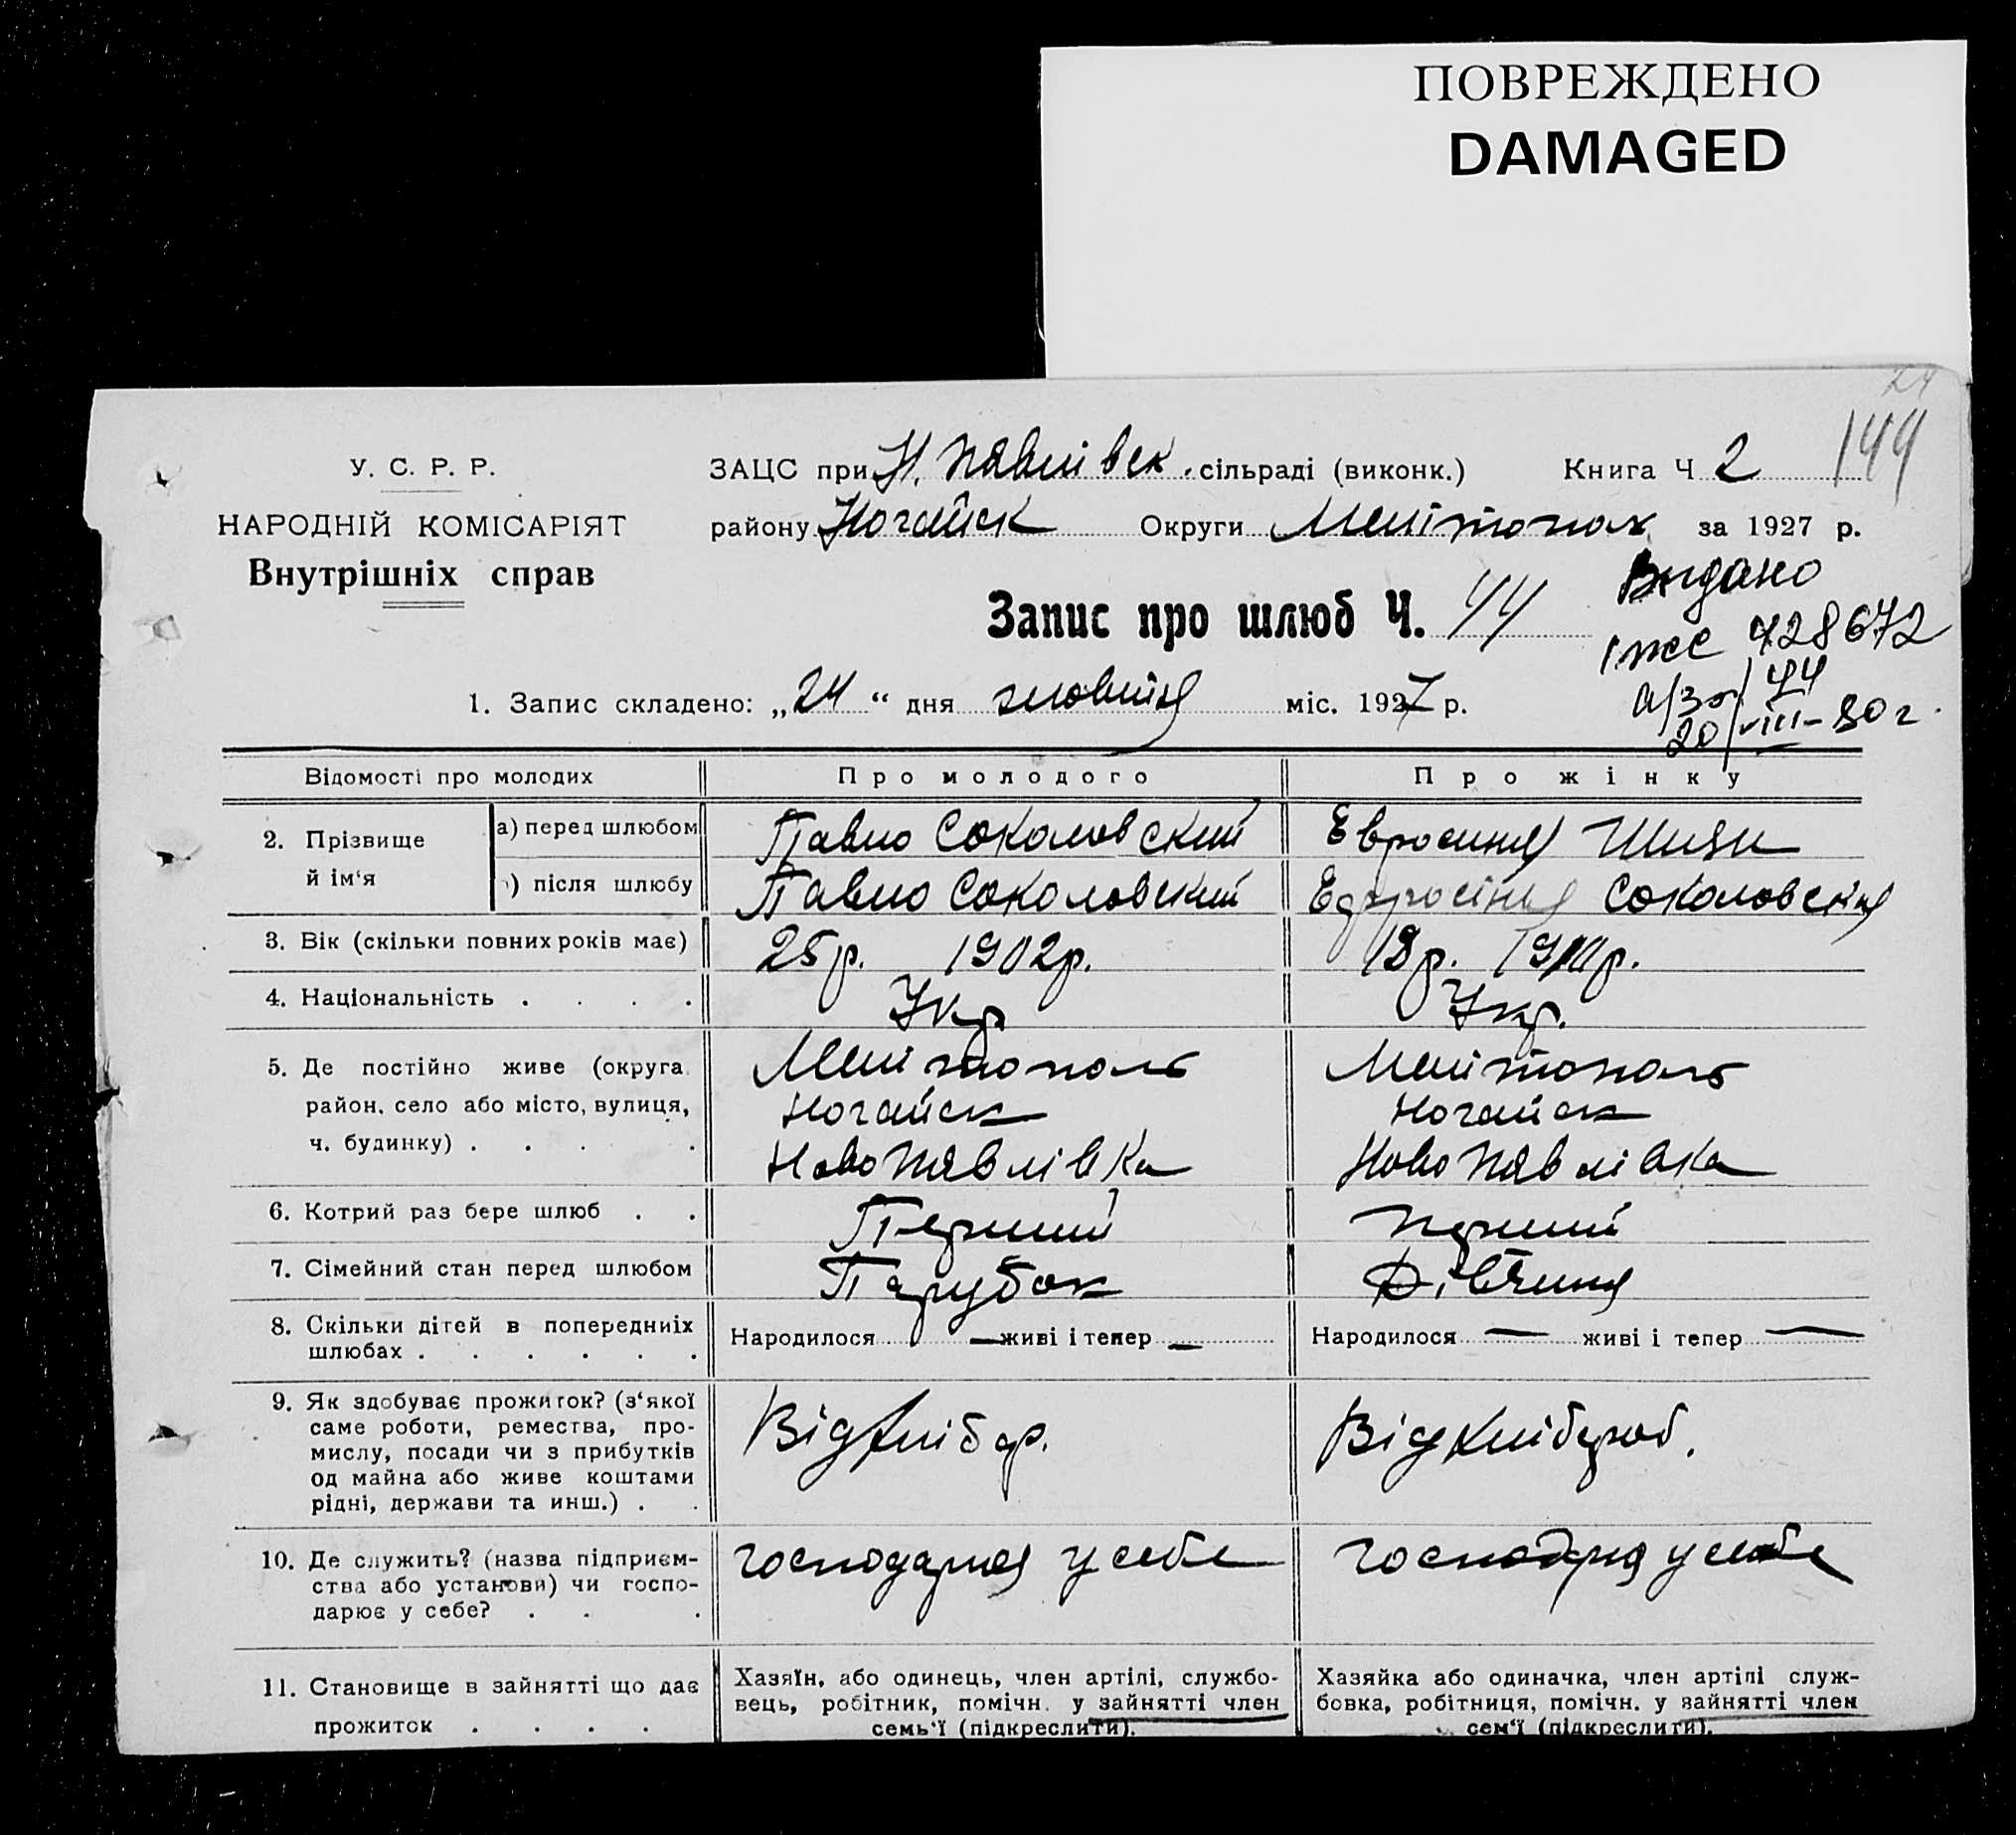 ПОВРЕЖДЕНО
DAMAGED
144
У. С. Р. Р.
НАРОДНІЙ КОМІСАРІЯТ
Внутрішніх справ
ЗАЦС при Н. Павлівск. сільраді (виконк.) Книга Ч 2
району Ногайск Округи Мелітополь за 1927 р.
Запис про шлюб Ч. 44
Видано
428672
20/VIII-80 г.
1. Запис складено: „24“ дня жовтня міс. 1927 р.
Відомості про молодих Про молодого Про жінку
2. Прізвище й ім‘я
а) перед шлюбом Павло Соколовский Евросиня
) після шлюбу Павло Соколовский Ефросіня Соколовская
3. Вік (скільки повних років має) 25 р. 1902 р. 18 р.
4. Національність . . . . Укр Укр.
5. Де постійно живе (округа, Мелітополь Мелітополь
район, село або місто, вулиця, Ногайск Ногайск
ч. будинку) . . . . НовоПавлівка НовоПавлівка
6. Котрий раз бере шлюб . . Перший перший
7. Сімейний стан перед шлюбом Парубок Дівчина
8. Скільки дітей в попередниіх
шлюбах . . . . . .
Народилося — живі і тепер — Народилося — живі і тепер —
9. Як здобуває прожиток? (з‘якої
саме роботи, ремества, про-
мислу, посади чи з прибутків
од майна або живе коштами
рідні, держави та инш.) . .
Від хліб др. Від хлібороб.
10. Де служить? (назва підприєм-
ства або установи) чи госпо-
дарює у себе? . . .
господарня у себе господарня у себе
11. Становище в зайнятті що дає
прожиток . . . .
Хазяїн, або одинець, член артілі, службо-
вець, робітник, помічн. у зайнятті член
семь‘ї (підкреслити).
Хазяйка або одиначка, член артілі служ-
бовка, робітниця, помічн. у зайнятті член
сем‘ї (підкреслити).